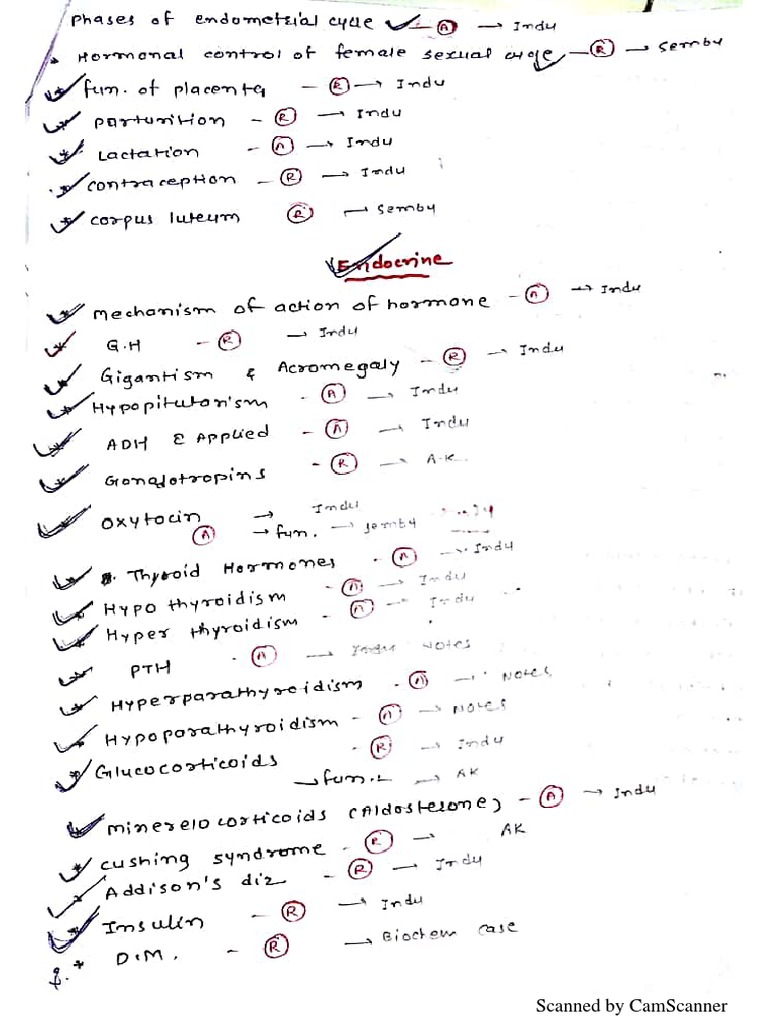 Phases of endometrial cycle - A → Indu
* Hormonal control of female sexual cycle - R → Semby
* fun. of placenta - R → Indu
* Parturition - R → Indu
* Lactation - A → Indu
* Contraception - R → Indu
* corpus luteum R → Semby
Endocrine
* Mechanism of action of hormone - A → Indu
* G.H - R → Indu
* Gigantism & Acromegaly - R → Indu
* Hypopitutarism - A → Indu
* ADH & Applied - A → Indu
* Gonadotropins - R → A.K.
* Oxytocin → Indu
A → fun. → Semby
* Thyroid Hormones - A → Indu
* Hypo thyroidism - A → Indu
* Hyper thyroidism - A → Indu
* PTH - A → Indu Notes
* Hyperparathyroidism - A → Notes
* Hypoparathyroidism - A → Notes
* Glucocorticoids - R → Indu
→ fun. → AK
* Minerelocorticoids (Aldosterone) - A → Indu
* cushing syndrome - R → AK
* Addison's diz - R → Indu
* Insulin - R → Indu
* D.M. - R → Biochem case
Scanned by CamScanner